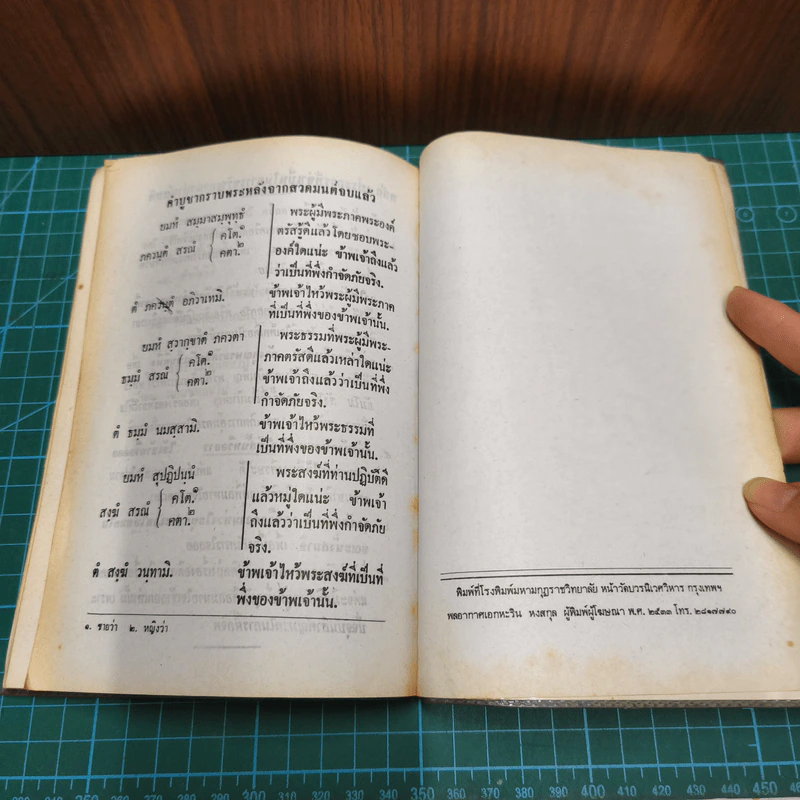 คำบูชากราบพระหลังจากสวดมนต์จบแล้ว
ยมหํ สมฺมาสมฺพุทฺธํ
ภควนฺตํ สรณํ
คโต.๑
คตา.๒
พระผู้มีพระภาคพระองค์
ตรัสรู้ดีแล้วโดยชอบพระ-
องค์ใดแน่ะ ข้าพเจ้าถึงแล้ว
ว่าเป็นที่พึ่งกำจัดภัยจริง.
ตํ ภควนฺตํ อภิวาเทมิ.
ข้าพเจ้าไหว้พระผู้มีพระภาค
ที่เป็นที่พึ่งของข้าพเจ้านั้น.
ยมหํ สฺวากฺขาตํ ภควตา
ธมฺมํ สรณํ
คโต.๑
คตา.๒
พระธรรมที่พระผู้มีพระ-
ภาคตรัสดีแล้วเหล่าใดแน่ะ
ข้าพเจ้าถึงแล้วว่าเป็นที่พึ่ง
กำจัดภัยจริง.
ตํ ธมฺมํ นมสฺสามิ.
ข้าพเจ้าไหว้พระธรรมที่
เป็นที่พึ่งของข้าพเจ้านั้น.
ยมหํ สุปฏิปนฺนํ
สงฺฆํ สรณํ
คโต.๑
คตา.๒
พระสงฆ์ที่ท่านปฏิบัติดี
แล้วหมู่ใดแน่ะ ข้าพเจ้า
ถึงแล้วว่าเป็นที่พึ่งกำจัดภัย
จริง.
ตํ สงฺฆํ วนฺทามิ.
ข้าพเจ้าไหว้พระสงฆ์ที่เป็นที่
พึ่งของข้าพเจ้านั้น.
๑. ชายว่า ๒. หญิงว่า
พิมพ์ที่โรงพิมพ์มหามกุฏราชวิทยาลัย หน้าวัดบวรนิเวศวิหาร กรุงเทพฯ
พลอากาศเอกหะริน หงสกุล ผู้พิมพ์ผู้โฆษณา พ.ศ. ๒๕๓๓ โทร. ๒๘๑๗๗๙๐